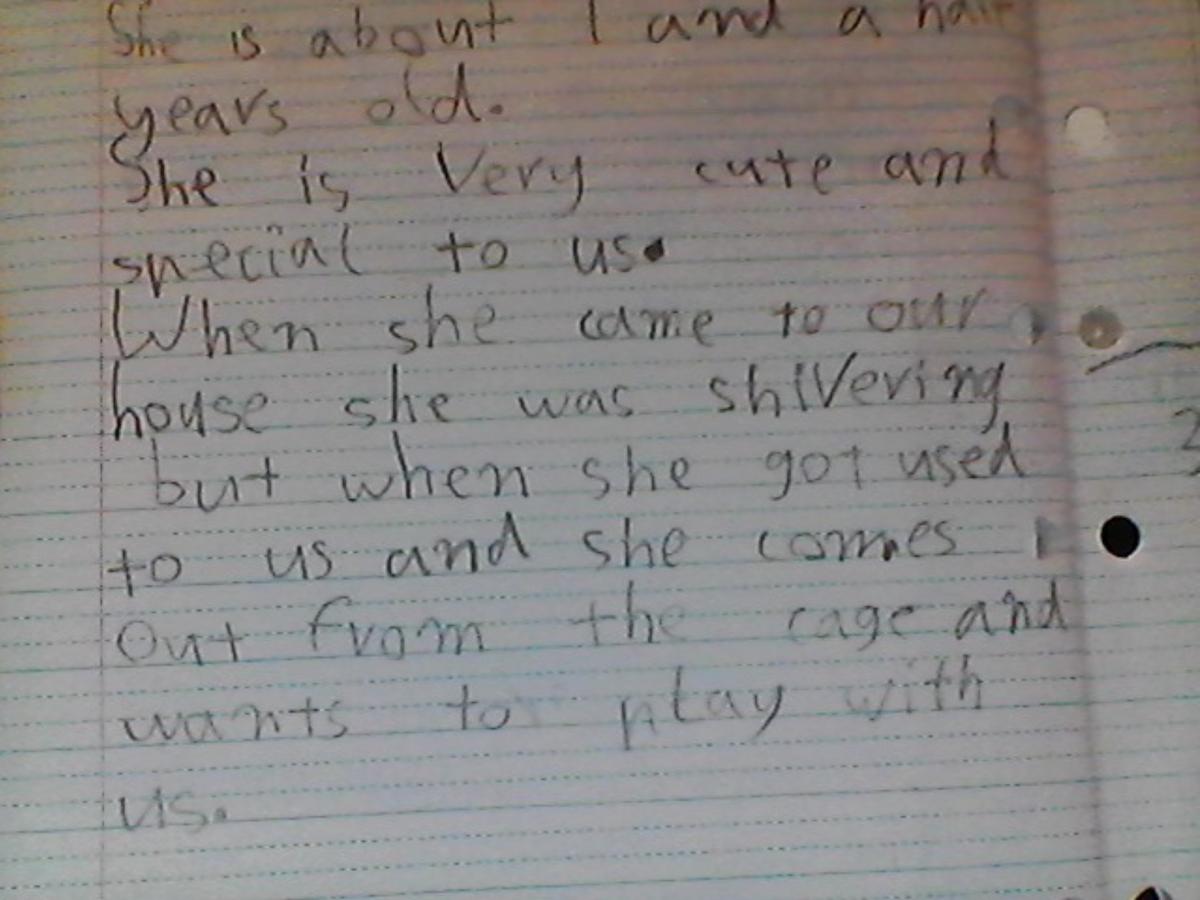 She is about 1 and a half
years old.
She is Very cute and
special to us.
When she came to our
house she was shiVering
but when she got used
to us and she comes
Out from the cage and
wants to play with
us.